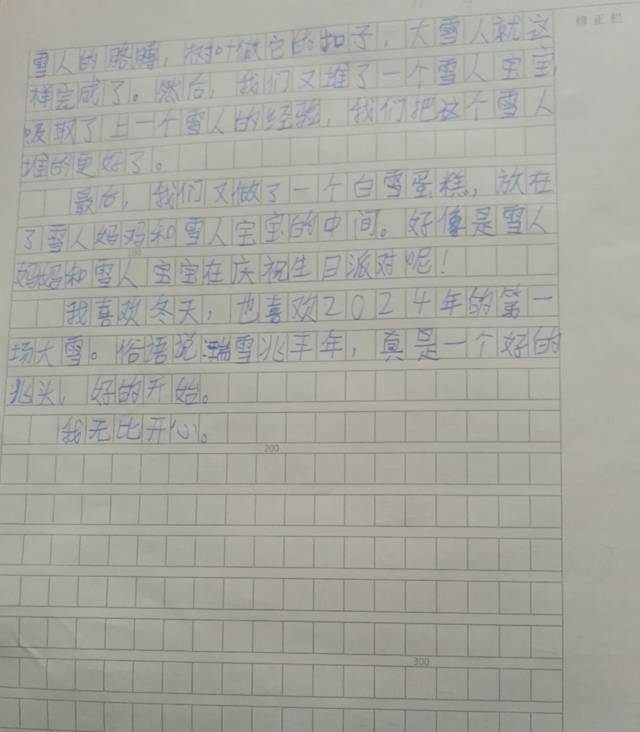 修正栏
雪人的胳膊，树叶做它的扣子，大雪人就这
样完成了。然后，我们又堆了一个雪人宝宝，
吸取了上一个雪人的经验，我们把这个雪人
堆的更好了。
最后，我们又做了一个白雪蛋糕，放在
了雪人妈妈和雪人宝宝的中间。好像是雪人
妈妈和雪人宝宝在庆祝生日派对呢！
我喜欢冬天，也喜欢2024年的第一
场大雪。俗语说瑞雪兆丰年，真是一个好的
兆头，好的开始。
我无比开心。
200
300